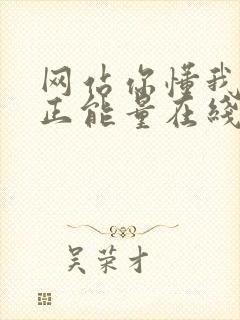 网佔你懂我
正能量在线
吴荣才